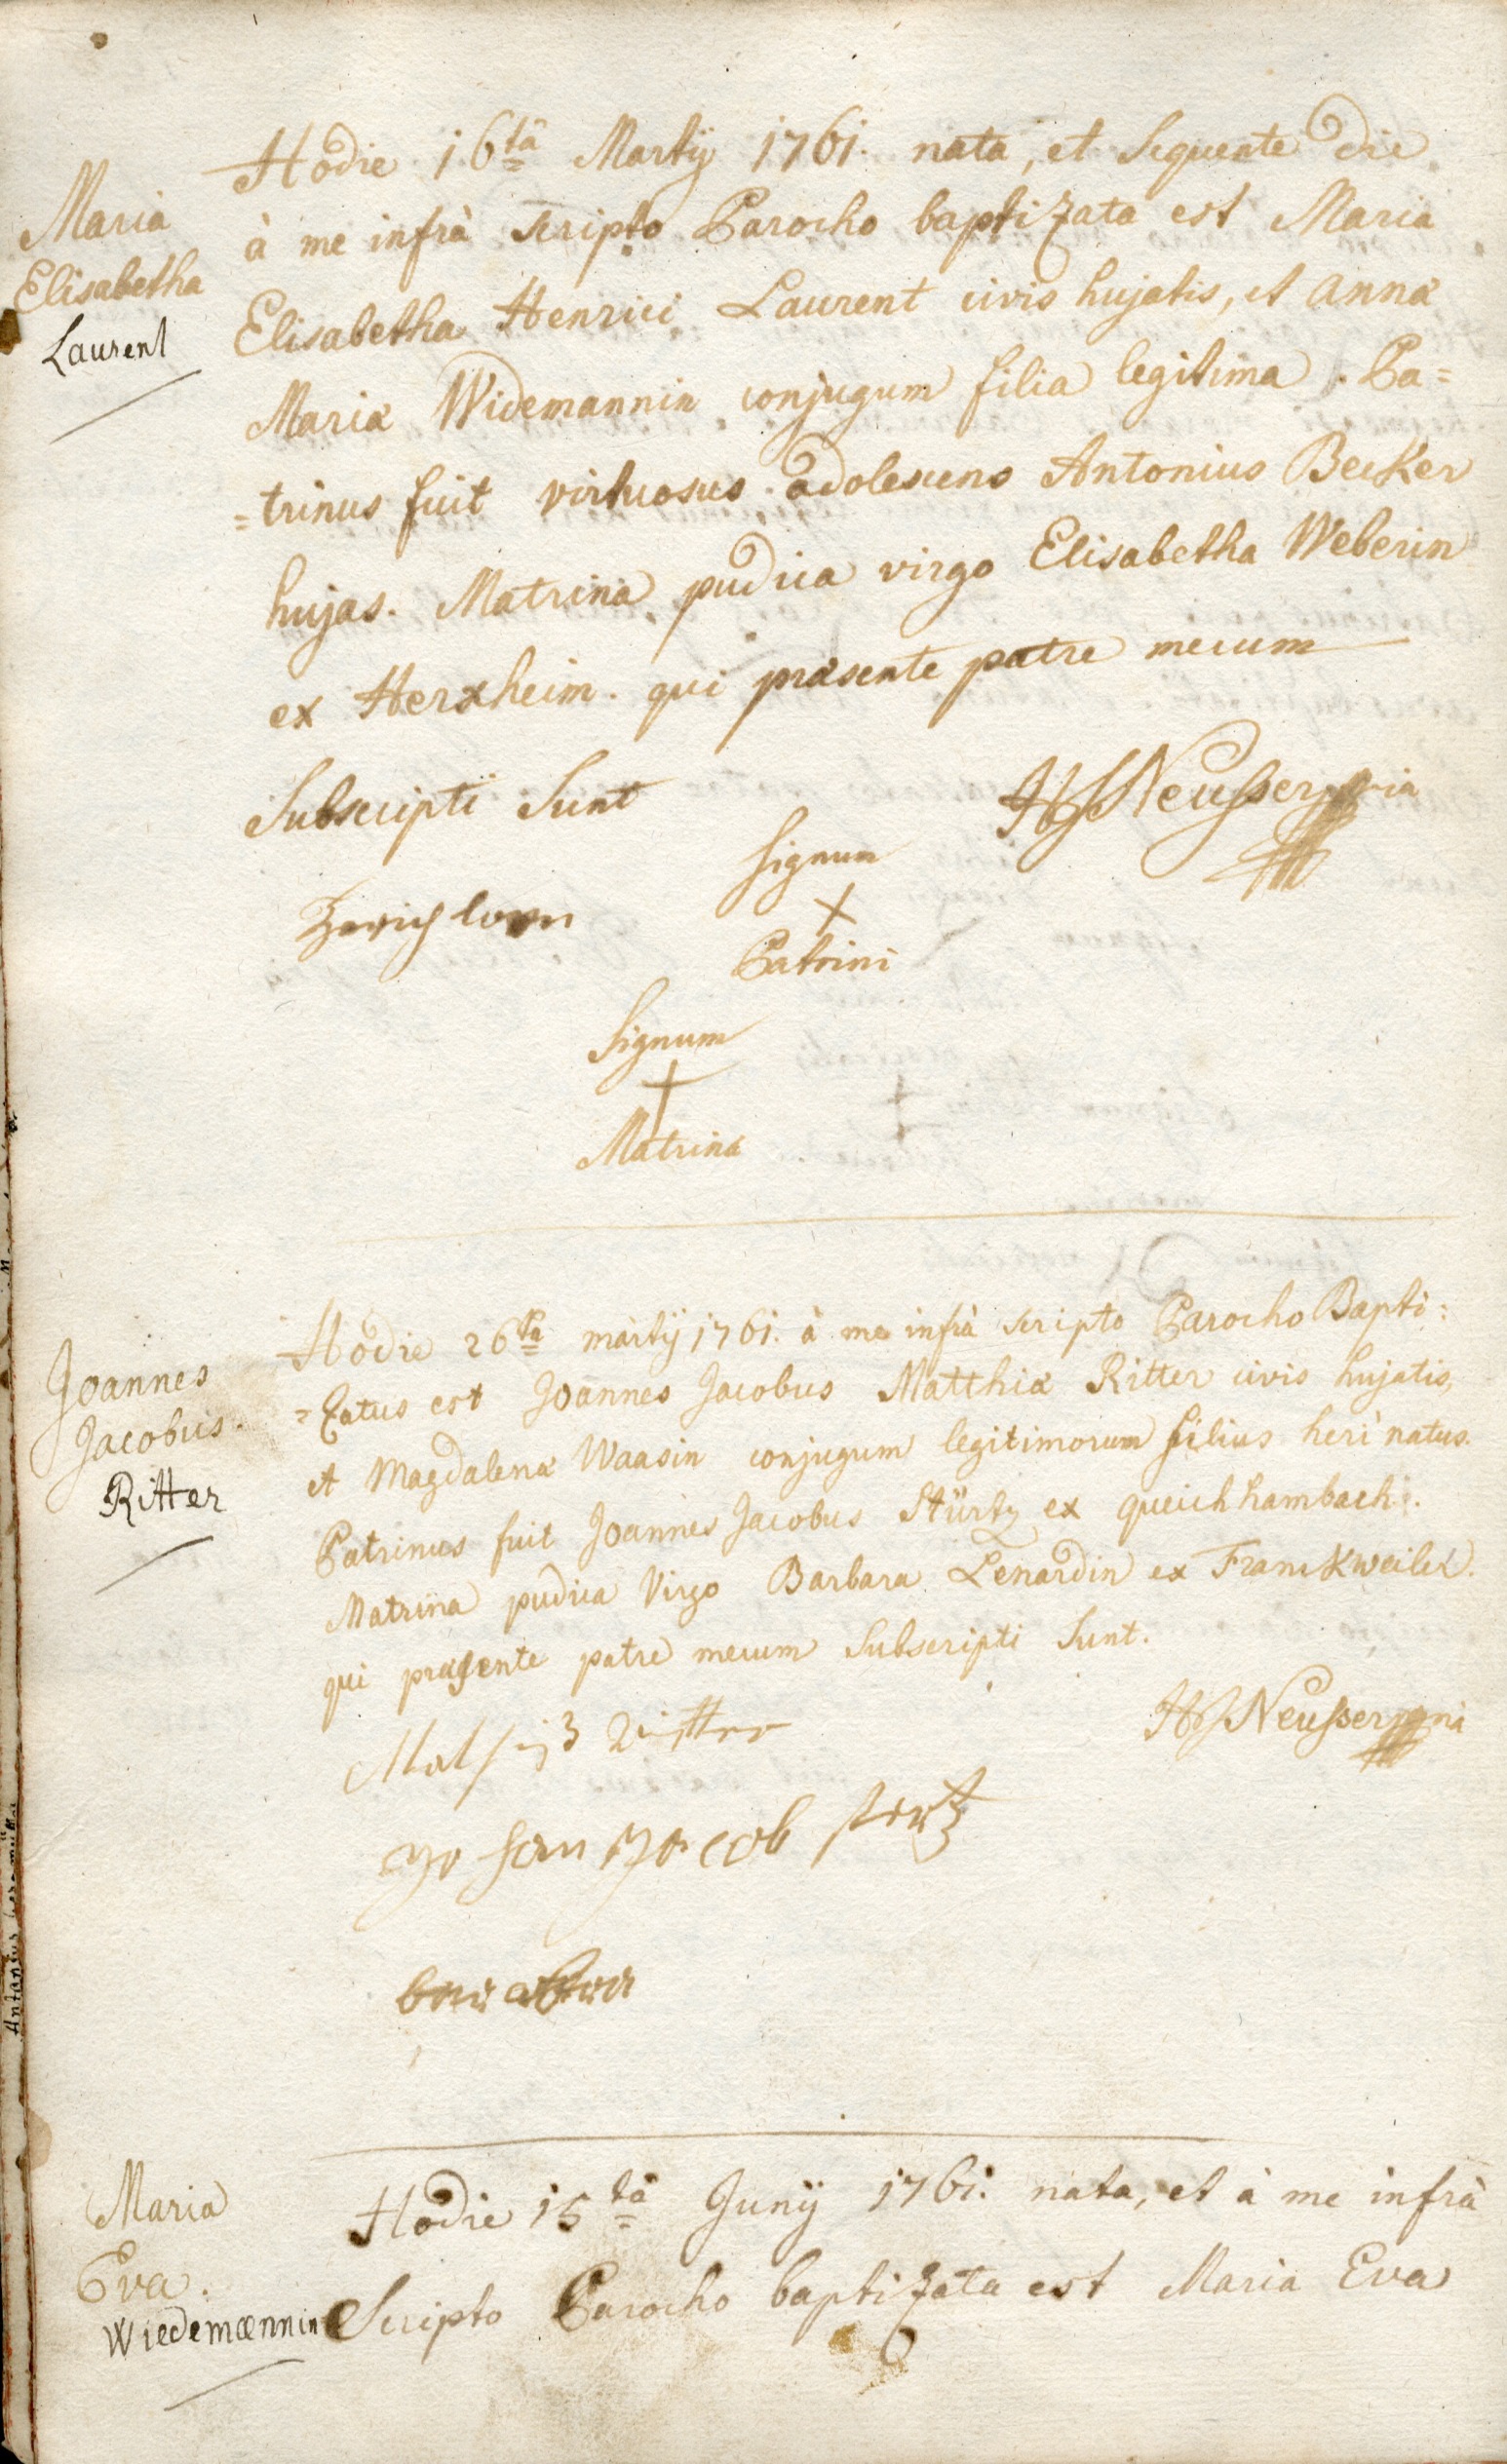 Maria
Elisabetha
Laurent
Hodie 16tâ Martÿ 1761. nata, et Sequente die
à me infrà scripto Parocho baptizata est Maria
Elisabetha Henrici Laurent civis hujatis, et Annæ
Mariæ Widemannin conjugum filia legitima. Pa=
=trinus fuit virtuosus adolescens Antonius Becker
hujas. Matrina pudica virgo Elisabetha Weberin
ex Herxheim. qui præsente patre mecum
Subscripti Sunt
HJNeusser
Signum
X
Patrini
Signum
+
Matrinæ
Joannes
Jacobus.
Ritter
Hodie 26ta martÿ 1761. à me infrà scripto Parocho Bapti=
=zatus est Joannes Jacobus Matthiæ Ritter civis hujatis,
et Magdalenæ Waasin conjugum legitimorum filius heri natus.
Patrinus fuit Joannes Jacobus Stürtz ex queichhambach.
Matrina pudica Virgo Barbara Lenardin ex Franckweiler.
qui præsente patre mecum Subscripti Sunt.
HJNeusser
Ritter
Johan Jacob
Maria
Eva.
Wiedemænnin
Hodie 15tâ Junÿ 1761. nata, et à me infrà
Scripto Parocho baptizata est Maria Eva